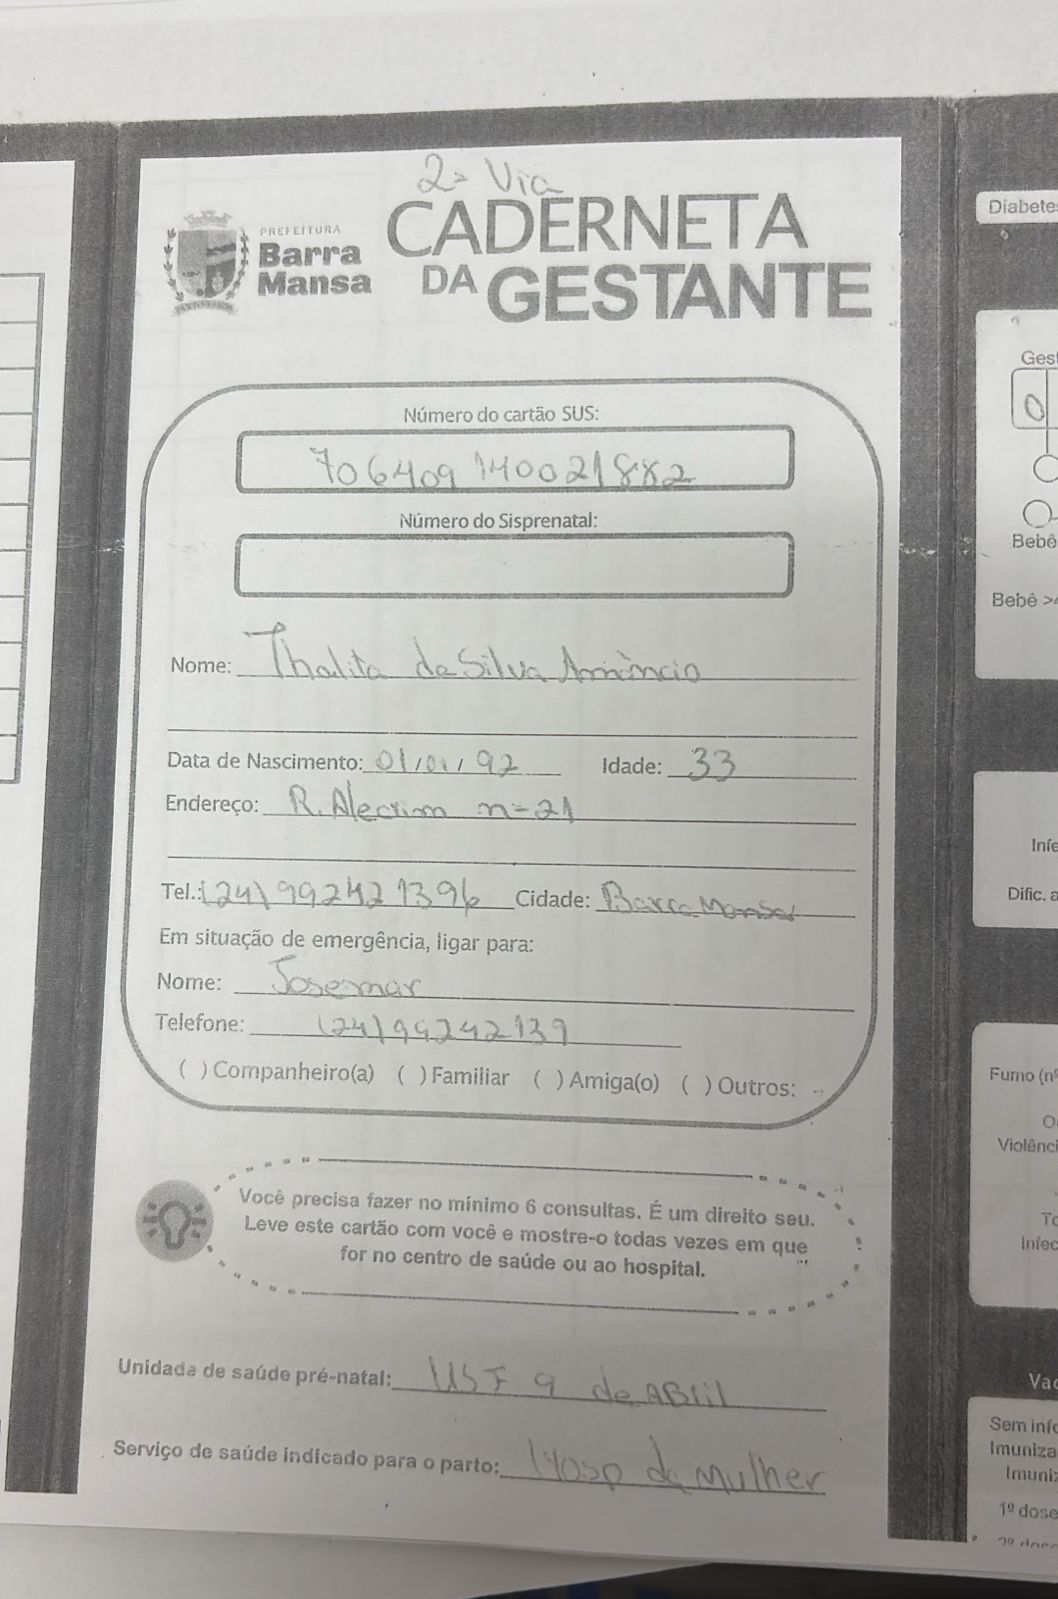 2ª Via
PREFEITURA
Barra
Mansa
CADERNETA
DA GESTANTE
Número do cartão SUS:
706409140021882
Número do Sisprenatal:
Nome: Thalita da Silva Amâncio
Data de Nascimento: 01/01/92 Idade: 33
Endereço: R. Alecrim nº 21
Tel.: (24) 992421396 Cidade: Barra Mansa
Em situação de emergência, ligar para:
Nome: Josemar
Telefone: (24) 99242139
( ) Companheiro(a) ( ) Familiar ( ) Amiga(o) ( ) Outros:
Você precisa fazer no mínimo 6 consultas. É um direito seu.
Leve este cartão com você e mostre-o todas vezes em que
for no centro de saúde ou ao hospital.
Unidada de saúde pré-natal: USF 9 de ABril
Serviço de saúde indicado para o parto: Hosp da Mulher
Diabete
Gest
0
Bebê
Bebê >
Infe
Dific. a
Fumo (nº
Violênci
Infec
Vac
Sem info
Imuniza
Imuniz
1º dose